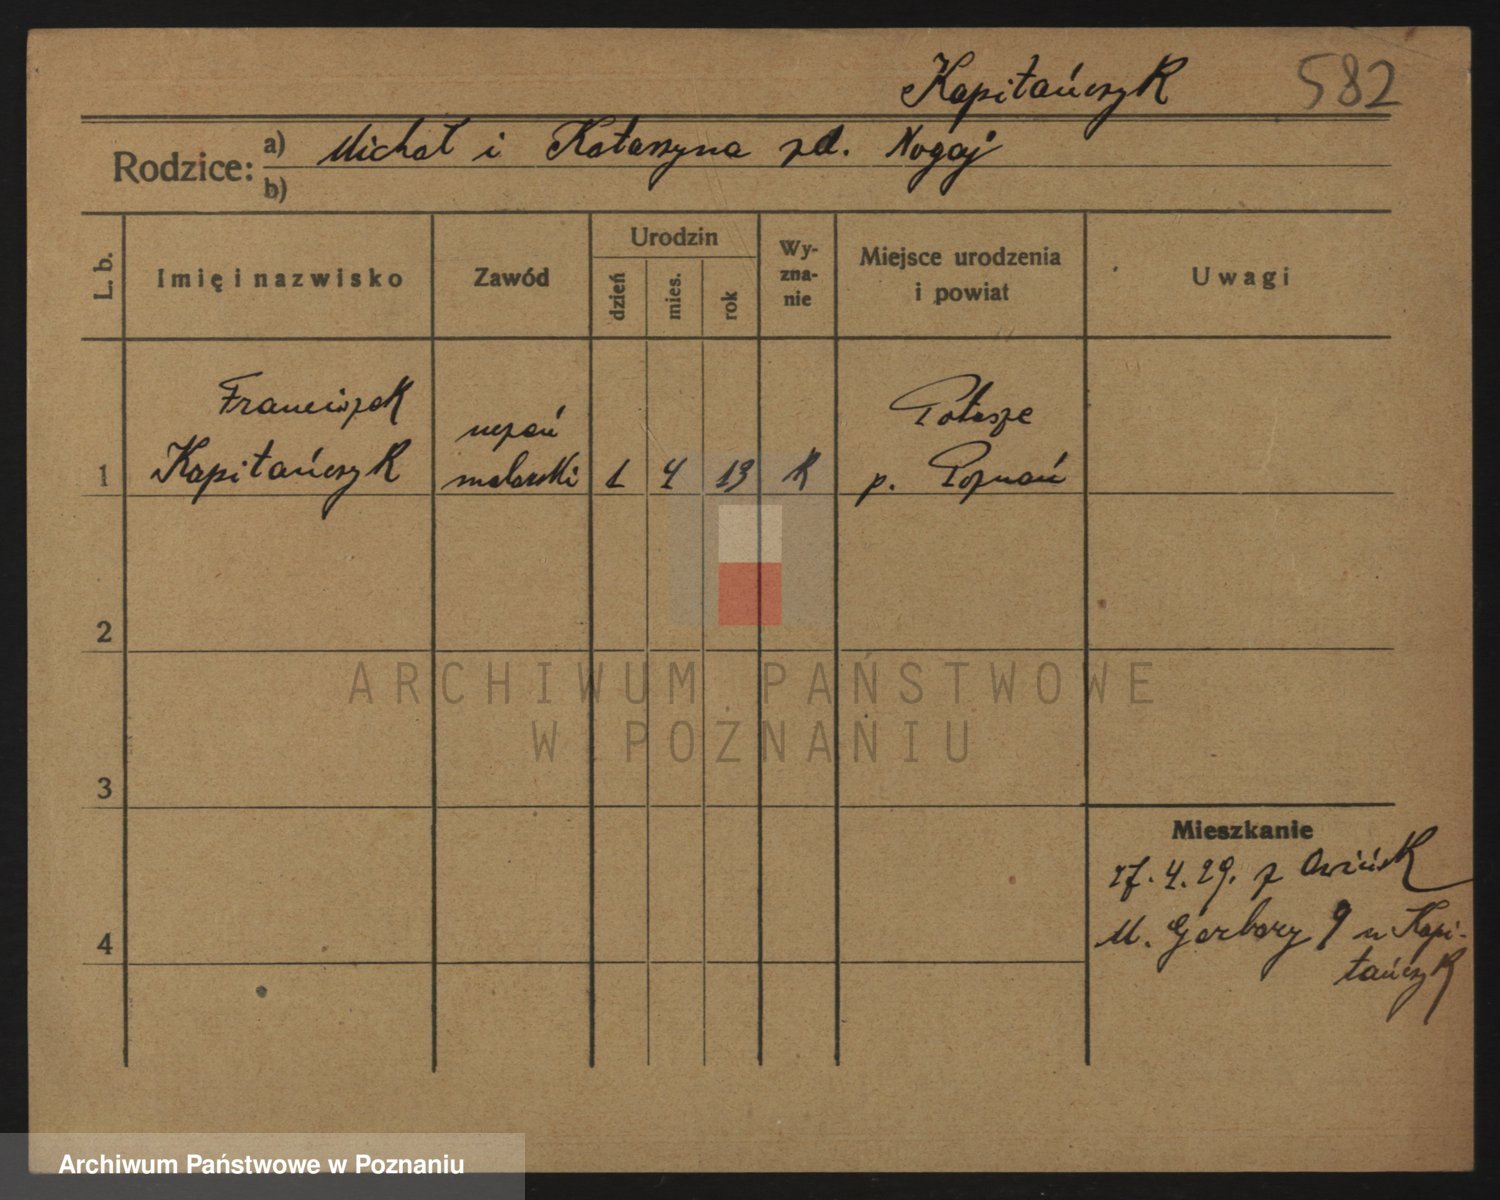 Kapitańczyk 582
Rodzice: a) Michał i Katarzyna zd. Nogaj
b)
L. b. Imię i nazwisko Zawód Urodzin dzień mies. rok Wy-zna-nie Miejsce urodzenia i powiat Uwagi
Franciszek
uczeń
Potasze
1 Kapitańczyk malarski 1 4 13 K p. Poznań
2
ARCHIWUM PAŃSTWOWE
W POZNANIU
3
Mieszkanie
27. 4. 29. z Owińsk
4 M. Garbary 9 u Kapi-
tańczyk
Archiwum Państwowe w Poznaniu